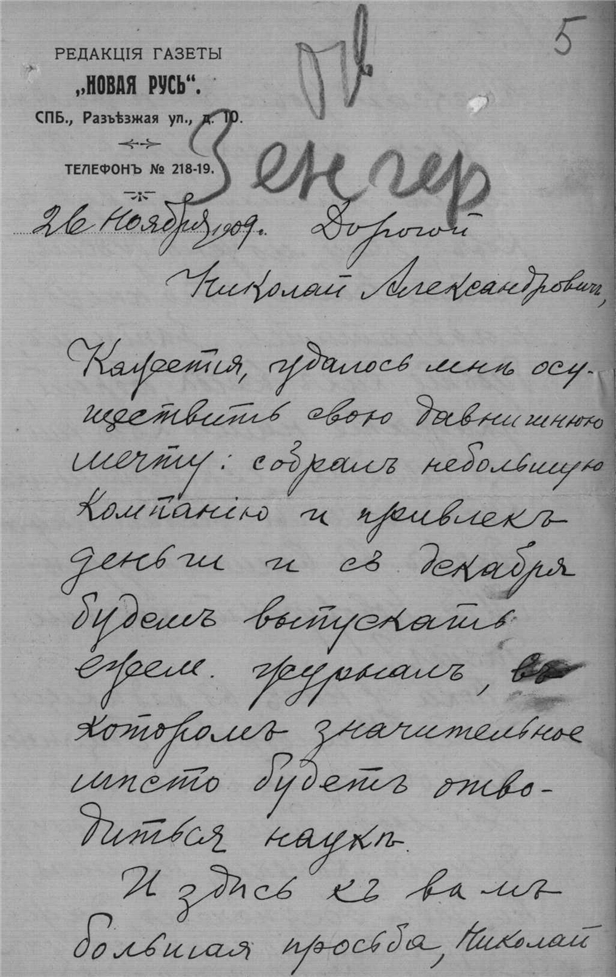 5
отв
РЕДАКЦІЯ ГАЗЕТЫ
„НОВАЯ РУСЬ“.
СПБ., Разъѣзжая ул., д. 10.
ТЕЛЕФОНЪ № 218-19.
Зенгер
26 Ноября 1909. Дорогой
Николай Александровичъ,
Кажется, удалось мнѣ осу-
ществить свою давнишнюю
мечту: собралъ небольшую
компанію и привлекъ
деньги и съ декабря
будемъ выпускать
ежем. журналъ, въ
которомъ значительное
мѣсто будетъ отво-
диться наукѣ.
И здѣсь къ вамъ
большая просьба, Николай